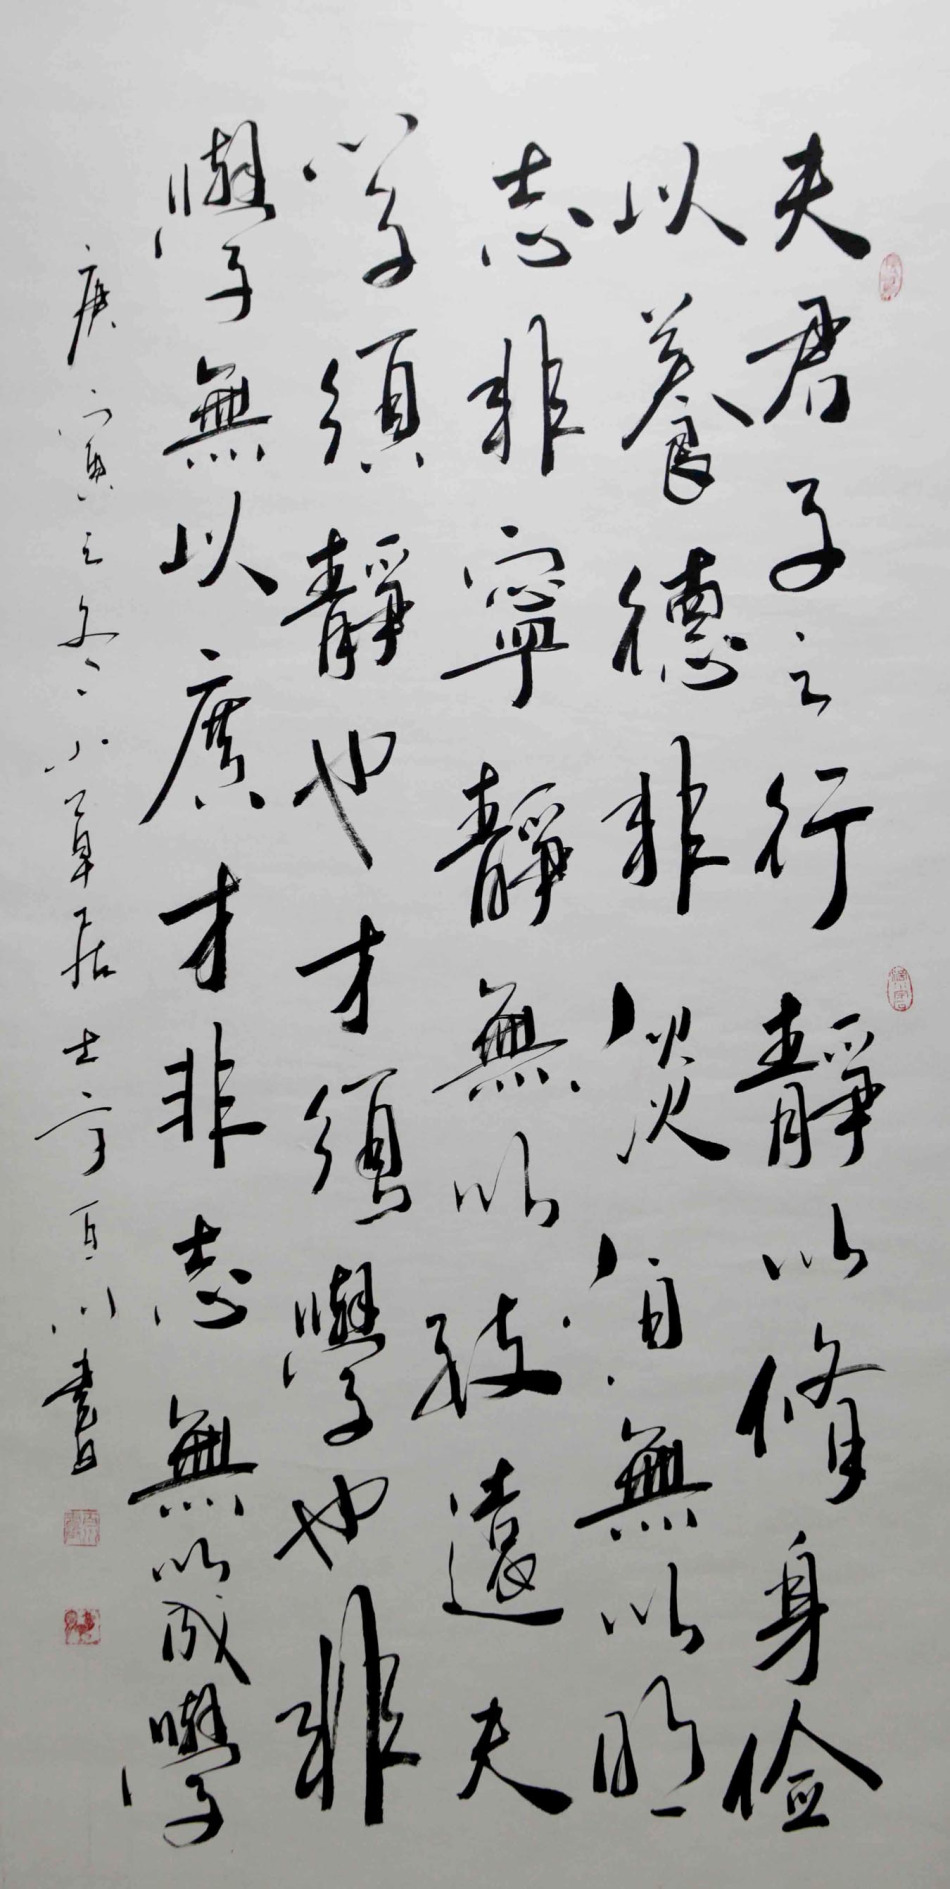 夫君子之行靜以修身儉
以養德非淡泊無以明
志非寧靜無以致遠夫
學須靜也才須學也非
學無以廣才非志無以成學
庚寅之冬八草居士
書